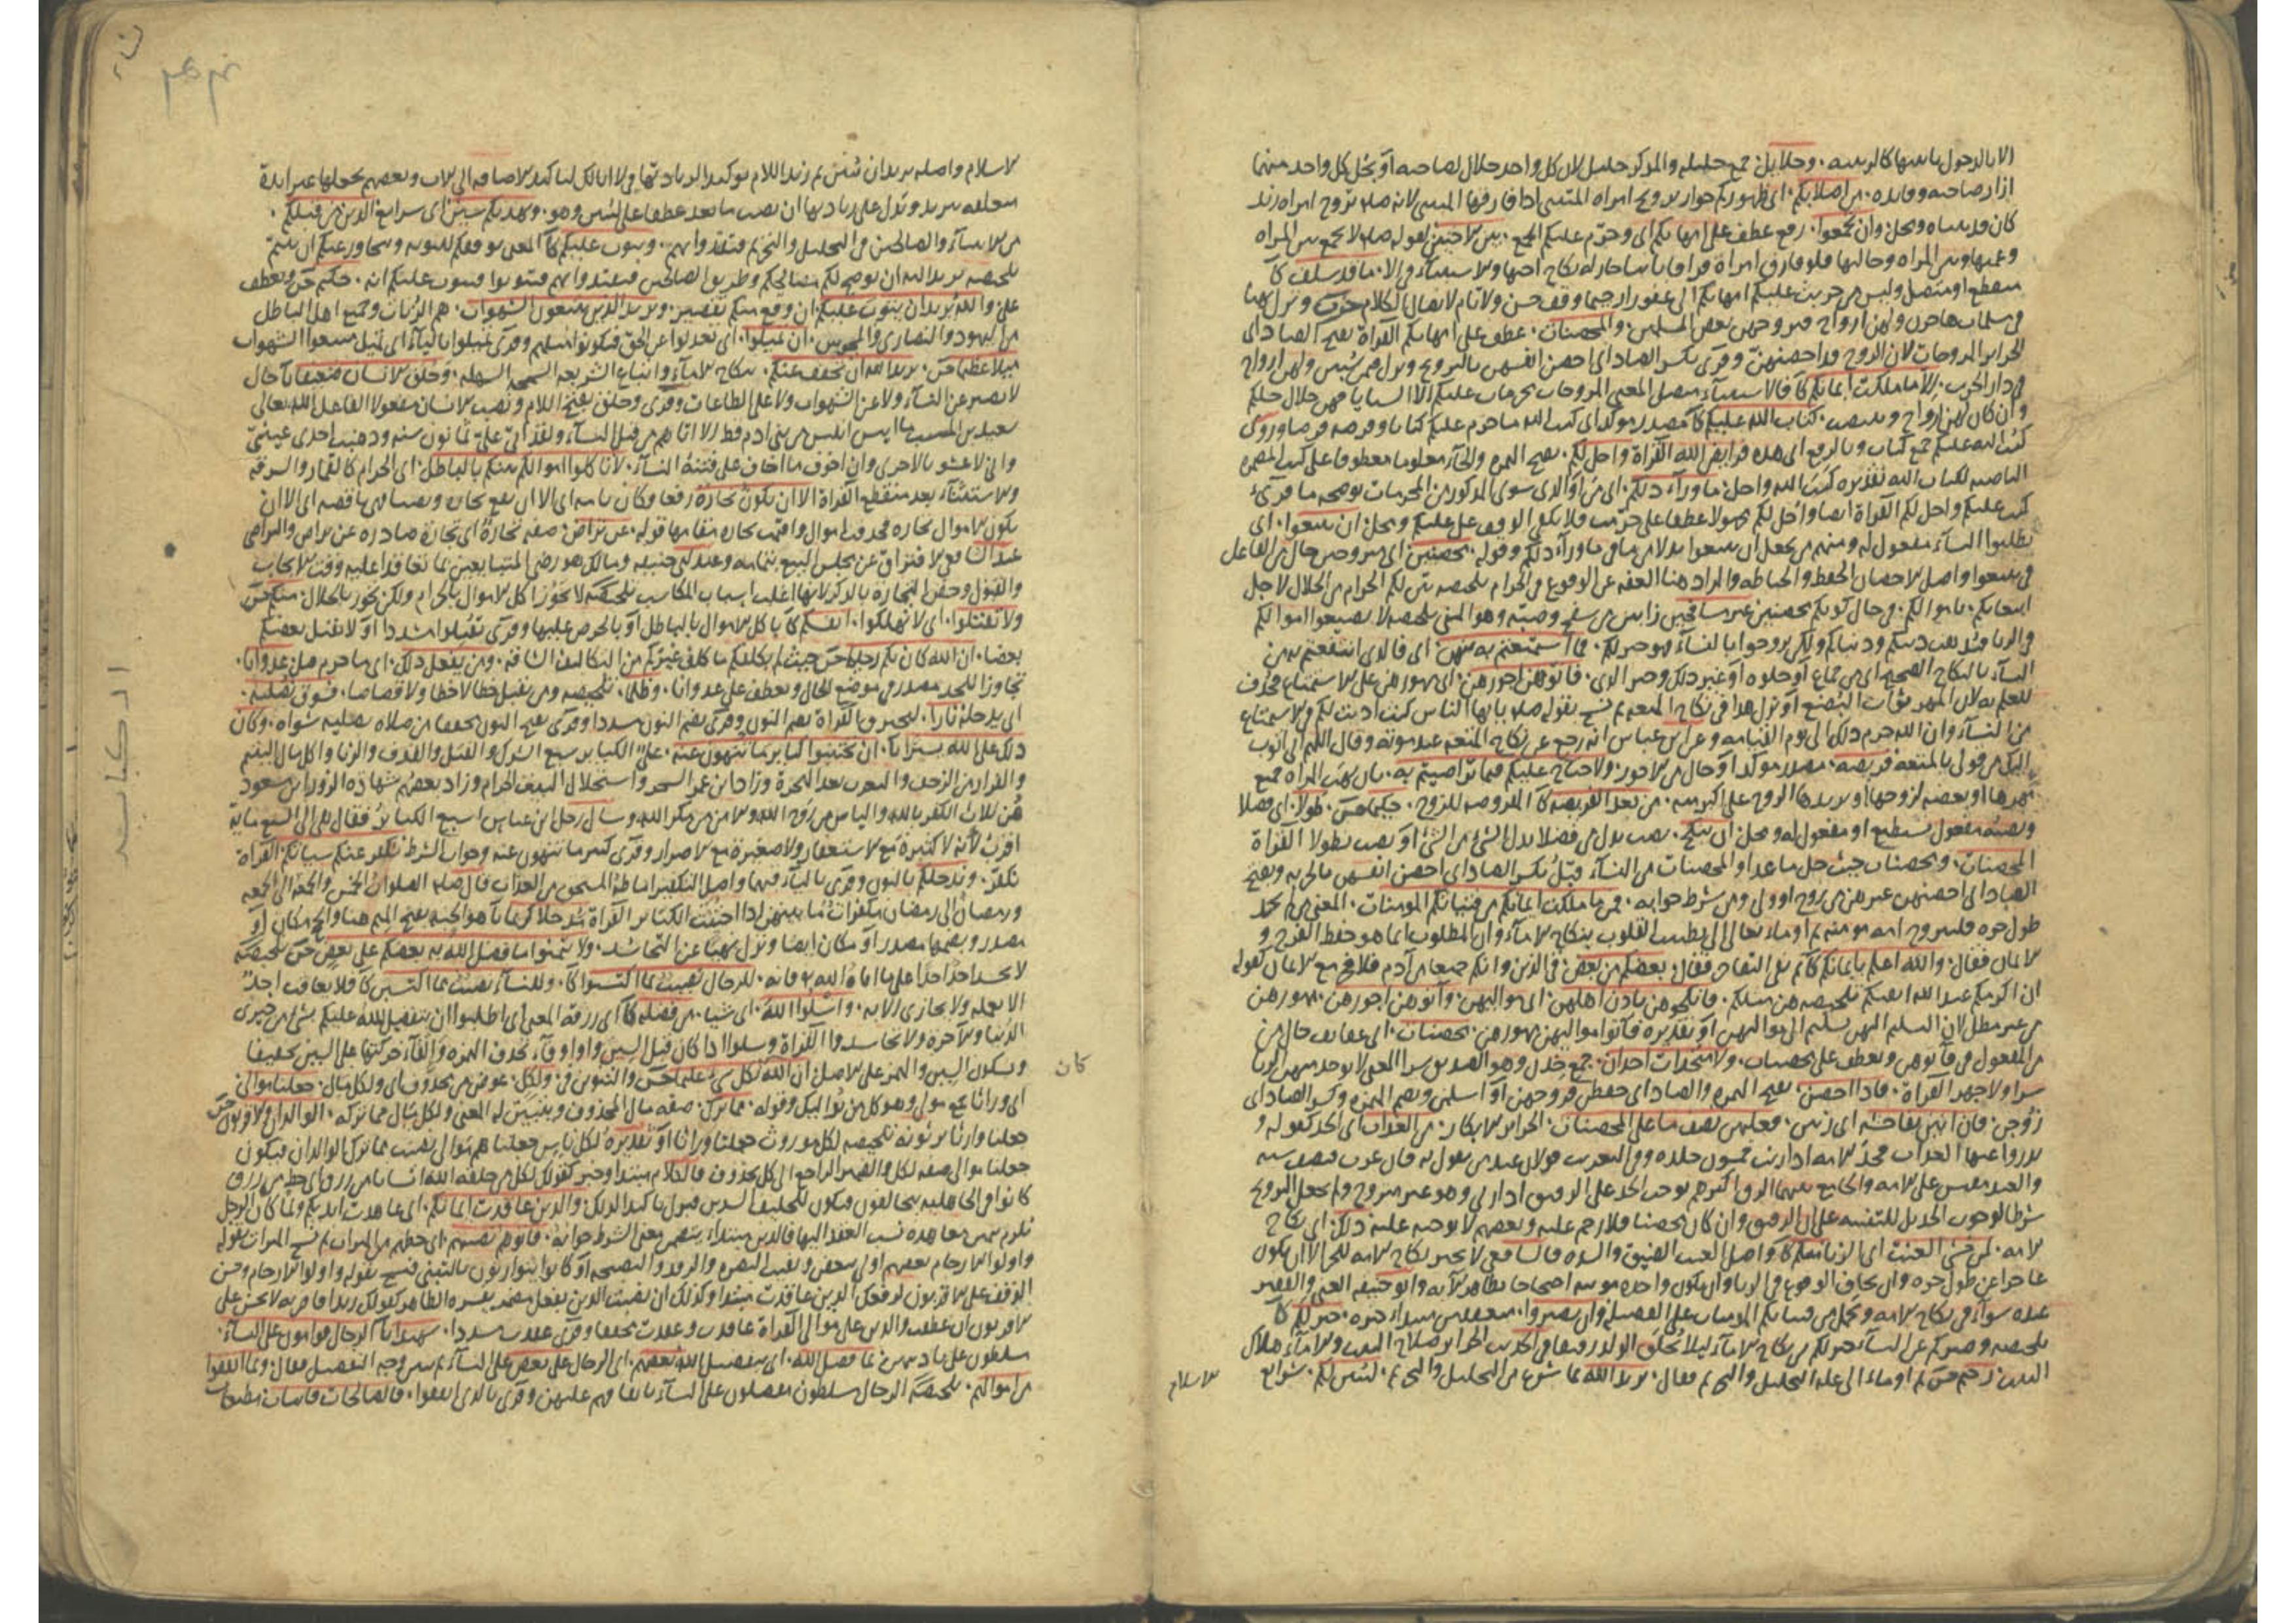 الا بالدخول بامها كالربيبه . وحلايل جمع حليله والمذكر حليل لان كل واحد حلال لصاحبه او يحل كل واحد منهما
ازار صاحبه وفايده . من اصلابكم . اى ظهوركم جواز تزويج امراه المتبنى اذا فارقها المتبنى لانه صلم تزوج امراه زيد
كان قد تبناه ومحل وان تجمعوا . رفع عطف على امهاتكم اى وحرم عليكم الجمع . بين الاختين لقوله صلم لا يجمع بين المراه
وعمتها وبين المراه وخالتها فلو فارق امراة فراقا باينا جاز له نكاح اختها والاستثناء فى الا . ما قد سلف كا
منقطع او متصل وليس من حرمت عليكم امهاتكم الى غفورا رحيما وقف حسن ولا تام لاتصال الكلام
فى مسلمات هاجرن ولهن ازواج فتزوجهن بعض المسلمين . والمحصنات . عطف على امهاتكم القراة بفتح الصاد اى
الحراير المزوجات لان الزوج قد احصنهن وقرى بكسر الصاد اى احصن انفسهن بالتزويج ونزل فيمن سبين ولهن ازواج
فى دار الحرب . الا ما ملكت ايمانكم كا فالاستثناء متصل المعنى المزوجات محرمات عليكم الا السبايا فهن حلال لكم
وان كان لهن ازواج وينتصب . كتاب الله عليكم كا مصدر موكد اى كتب الله ما حرم عليكم كتابا وفرضه فرضا وروى
كتب الله عليكم جمع كتاب وبالرفع اى هذه فرايض الله القراة واحل لكم . بفتح الهمزه والحاء معلوما معطوفا على كتب المضمره
الناصبه لكتاب الله تقديره كتب الله واحل . ما وراء ذلكم . اى من او الذى سوى المذكور من المحرمات توضحه ما قرئ
كتب عليكم واحل لكم القراة ايضا واحل لكم مجهولا عطفا على حرمت فلا يكفى الوقف على عليكم ومحل ان تبتغوا . اى
تطلبوا النساء مفعول له ومنهم من يجعل ان تبتغوا بدلا من ما فى ما وراء ذلكم وقوله . محصنين . اى متزوجين حال من الفاعل
فى تبتغوا واصل الاحصان الحفظ والحياطه والمراد هنا العفه عن الوقوع فى الحرام تلخيصه بين لكم الحرام من الحلال لاجل
ابتغايكم . باموالكم . فى حال كونكم محصنين غير مسافحين زانين من سفح وصبه وهو المنى تلخيصه لا تضيعوا اموالكم
والزنا فتذهب دينكم ودنياكم ولكن تزوجوا بالنساء فهو خير لكم . فما استمتعتم به منهن . اى فالذى انتفعتم به من
النساء بالنكاح الصحيح اى من جماع او خلوه او غير ذلك وخبر الذى . فاتوهن اجورهن . اى مهورهن على الاستمتاع فحذف
للعلم به لان المهر ثواب البضع او نزل هذا فى نكاح المتعه ثم نسخ بقوله صلم يا ايها الناس كنت اذنت لكم فى الاستمتاع
من النساء وان الله حرم ذلك الى يوم القيامه وعن ابن عباس انه رجع عن نكاح المتعه عند موته وقال اللهم انى اتوب
اليك من قولى بالمتعه فريضه . مصدر موكد او حال من الاجور . ولا جناح عليكم فيما تراضيتم به . بان تهب المراه جميع
مهرها او بعضه لزوجها او يزيدها الزوج على اكثر منه . من بعد الفريضه كا المفروضه للزوج . حكيما حسن . طولا . اى فضلا
ونصبه مفعول يستطع او مفعول له ومحل ان ينكح . نصب بدل من فضلا بدل الشئ من الشئ او نصب بطولا القراة
المحصنات . ومحصنات حيث حل ما عدا والمحصنات من النساء قبل بكسر الصاد اى احصن انفسهن بالحريه وبفتح
الصاد اى احصنهن غيرهن من زوج او ولى ومن شرط جوابه . فمن ما ملكت ايمانكم من فتياتكم المومنات . المعنى من لم يجد
طول حره فليتزوج امه مومنه ثم اوماء تعالى الى تطييب القلوب بنكاح الاماء وان المطلوب انما هو حفظ الفرج و
الايمان فقال . والله اعلم بايمانكم كا ثم نفى التفاخر فقال . بعضكم من بعض . فى الدين وانكم جميعا من آدم فلا فخر مع الايمان كقوله
ان اكرمكم عند الله اتقيكم تلخيصه هن مثلكم . فانكحوهن باذن اهلهن . اى مواليهن . وآتوهن اجورهن . مهورهن
من غير مطل لان التسليم اليهن تسليم الى مواليهن او تقديره فآتوا مواليهن مهورهن . محصنات . اى عفايف حال من
المفعول فى فآتوهن ويعطف على محصنات . ولا متخذات اخدان . جمع خدن وهو الصديق سرا المعنى لا يوجد منهن الزنا
سرا ولا جهرا القراة . فاذا احصن . بفتح الهمزه والصاد اى حفظن فروجهن او اسلمن وبضم الهمزه وكسر الصاد اى
زوجن . فان اتين بفاحشه اى زنين . فعليهن نصف ما على المحصنات . الحراير الابكار . من العذاب اى الحد كقوله و
يدروا عنها العذاب فحد الامه اذا زنت خمسون جلده وفى التغريب قولان عند من يقول به فان غرب فنصف سنه
والعبد مقيس على الامه والجامع بينهما الرق اكثرهم يوجب الحد على الرقيق اذا زنى وهو غير متزوج ولم يجعل التزويج
شرطا لوجوب الحد بل للتنبيه على ان الرقيق وان كان محصنا فلا رجم عليه وبعضهم لا يوجبه عليه . ذلك . اى نكاح
الامه . لمن خشى العنت اى الزنا منكم كا واصل العنت الضيق والشده فالشافعى لا يجيز نكاح الامه للحر الا ان يكون
عاجزا عن طول حره وان يخاف الوقوع فى الزنا وان يكون واحده مومنه احتجاجا بظاهر الآيه وابو حنيفه الغنى والفقير
عنده سوآء فى نكاح الامه ويحمل من فتياتكم المومنات على الفضيله وان تصبروا . متعففين مبتداء خبره . خير لكم كا
تلخيصه وصبركم عن النساء خير لكم من نكاح الاماء ليلا يخلق الولد رقيقا وفى الحديث الحراير صلاح البيت والاماء هلاك
البيت رحيم حسن ثم اوماء الى علة التحليل والتحريم فقال . يريد الله بما شرع من التحليل والتحريم . ليبين لكم . شرايع
الاسلام
الاسلام واصله يريد ان يبين ثم زيد اللام توكيدا لزيادتها فى لا ابا لك لتاكيد الاضافه الى الاب وبعضهم يجعلها غير زايدة
متعلقه بيريد وتدل على زيادتها ان نصب ما بعد عطفا على ليبين وهو . ويهديكم سنن اى شرايع الذين من قبلكم .
من الانبياء والصالحين فى التحليل والتحريم فتقتدوا بهم . ويتوب عليكم كا المعنى يوفقكم للتوبه ويتجاوز عنكم ان تبتم
تلخيصه يريد الله ان يوضح لكم مصالحكم وطريق الصالحين فتقتدوا بهم فتتوبوا فيتوب عليكم انه . حكيم حسن ويعطف
على والله يريد ان يتوب عليكم . ان وقع منكم تقصير . ويريد الذين يتبعون الشهوات . هم الزناة وجميع اهل الباطل
من اليهود والنصارى والمجوس . ان تميلوا . اى تعدلوا عن الحق فتكونوا مثلهم وقرى يميلوا بالياء اى يميل متبعوا الشهوات
ميلا عظيما حسن . يريد الله ان يخفف عنكم . بنكاح الاماء واتباع الشريعه السمحه السهله . وخلق الانسان ضعيفا كا حال
لا يصبر عن النساء ولا عن الشهوات ولا على الطاعات وقرى وخلق بفتح اللام ونصب الانسان مفعولا الفاعل الله تعالى
سعيد بن المسيب ما ايس ابليس من بنى ادم قط الا اتاهم من قبل النساء ولقد اتى على ثمانون سنه وذهبت احدى عينى
وانى لاعشو بالاخرى وان اخوف ما اخاف على فتنة النساء . لا تاكلوا اموالكم بينكم بالباطل . اى الحرام كالقمار والسرقه
والاستثناء بعد منقطع القراة الا ان تكون تجارة رفعا وكان تامه اى الا ان تقع تجارة ونصبا فهى ناقصه اى الا ان
يكون الاموال تجاره فحذفت اموال واقيمت تجاره مقامها قوله . عن تراض . صفه تجارة اى تجارة صادره عن تراض والتراضى
عند الشافعى الافتراق عن مجلس البيع بتمامه وعند ابى حنيفه ومالك هو رضى المتبايعين بما تعاقدا عليه وقت الايجاب
والقبول وخص التجارة بالذكر لانها اغلب اسباب المكاسب تلخيصه لا يجوز اكل الاموال بالحرام ولكن يجوز بالحلال . منكم حسن
ولا تقتلوا . اى لا تهلكوا . انفسكم كا باكل الاموال بالباطل او بالحرص عليها وقرى تقتلوا مشددا او لا يقتل بعضكم
بعضا . ان الله كان بكم رحيما حسن حيث لم يكلفكم ما كلف غيركم من التكاليف الشاقه . ومن يفعل ذلك . اى ما حرم من قبل عدوانا .
تجاوزا للحد مصدر فى موضع الحال ويعطف على عدوانا . وظلما . تلخيصه ومن يقتل خطا لا خطا ولا قصاصا . فسوف نصليه .
اى يدخله نارا . القراة بضم النون وقرى بضم النون مشددا وقرى بفتح النون مخففا من صلاه يصليه شواه . وكان
ذلك على الله يسيرا كا . ان تجتنبوا كباير ما تنهون عنه . على الكباير سبع الشرك والقتل والقذف والزنا واكل مال اليتيم
والفرار من الزحف والتعرب بعد الهجرة وزاد ابن عمر السحر واستحلال البيت الحرام وزاد بعضهم شهادة الزور ابن مسعود
هن ثلاث الكفر بالله والياس من روح الله والامن من مكر الله وسال رجل ابن عباس اسبع الكباير فقال هى الى السبع ماية
اقرب لانه لا كبيرة مع الاستغفار ولا صغيرة مع الاصرار وقرى كبير ما تنهون عنه وجواب الشرط نكفر عنكم سيآتكم القراة
نكفر . وندخلكم بالنون وقرى بالياء فيهما واصل التكفير اماطة المستحق من العذاب قال صلم الصلوات الخمس والجمعة الى الجمعه
ورمضان الى رمضان مكفرات ما بينهن اذا اجتنبت الكباير القراة مدخلا كريما كا هو الجنه بفتح الميم هنا والحج مكان او
مصدر وبضمها مصدر او مكان ايضا ونزل نهيا عن التحاسد . ولا تتمنوا ما فضل الله به بعضكم على بعض حسن تلخيصه
لا يحسد احد احدا على ما اتاه الله به فانه . للرجال نصيب مما اكتسبوا كا . وللنساء نصيب مما اكتسبن كا فلا يعاقب احد
الا بعمله ولا يجازى الا به . واسئلوا الله . اى شيا . من فضله كا اى رزقه المعنى اى اطلبوا ان يتفضل الله عليكم بشئ من خيرى
الدنيا والاخره ولا تحاسدوا القراة وسلوا اذا كان قبل السين واو او فآء بحذف الهمزه والقاء حركتها على السين تخفيفا
وبسكون السين والهمز على الاصل . ان الله بكل شئ عليما حسن والتنوين فى . ولكل . عوض من محذوف اى ولكل مال . جعلنا موالى
كان
اى وراثا جمع مولى وهو كل من يواليك وقوله . مما ترك . صفه مال المحذوف وتبيين له المعنى ولكل مال مما تركه . الوالدان والاقربون حسن
جعلنا وارثا يرثونه تلخيصه لكل موروث جعلنا وراثا او تقديره لكل ناس جعلناهم موالى نصيب مما ترك الوالدان فيكون
جعلنا موالى صفه لكل والضمير الراجع الى كل محذوف فالكلام مبتدا وخبر كقولك لكل من خلقه الله انسانا من رزق اى حظ من رزق
كانوا فى الجاهليه يتحالفون فيكون للحليف السدس فنزل تاكيدا لذلك . والذين عاقدت ايمانكم . اى عاهدت ايديكم ولما كان الرجل
يلزم يمين معاهده نسب العقد اليها فالذين مبتداء يتضمن معنى الشرط جوابه . فاتوهم نصيبهم . اى حظهم من الميراث ثم نسخ الميراث بقوله
واولوا الارحام بعضهم اولى ببعض وبقيت النصره والرفد والنصيحه او كانوا يتوارثون بالتبنى فنسخ بقوله واولوا الارحام وحسن
الوقف على الاقربون لرفعك الذين عاقدت مبتدا وكذلك ان نصبت الذين بفعل مضمر يفسره الظاهر كقولك زيدا فاضربه لا يحسن على
الاقربون ان عطفت والذين على موالى القراة عاقدت وعقدت مخففا وقرى عقدت مشددا . شهيدا كا . الرجال قوامون على النساء .
مسلطون على تاديبهن . بما فضل الله . اى بتفضيل الله بعضهم . اى الرجال على بعض على النساء ثم بين وجه التفضيل فقال . وبما انفقوا
من اموالهم . تلخيصه الرجال مسلطون مفضلون على النساء بانفاقهم عليهن وقرى بالذى انفقوا . فالصالحات قانتات مطيعات